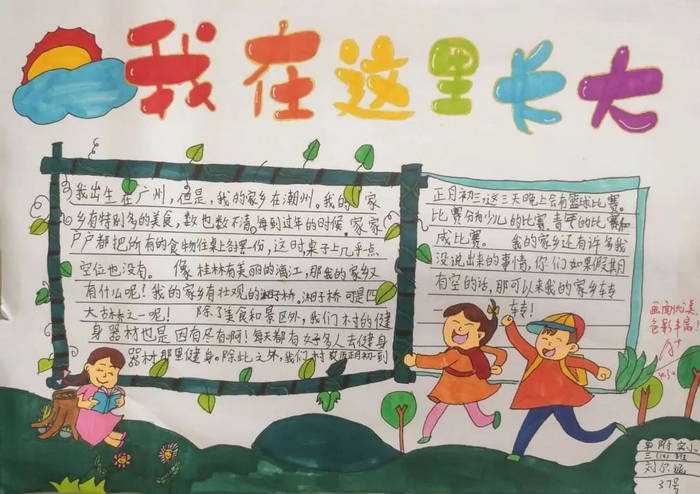 我在这里长大
我出生在广州，但是，我的家乡在潮州。我的家
乡有特别多的美食，数也数不清。每到过年的时候，家家
户户都把所有的食物往桌上摆，这时，桌子上几乎一点
空位也没有。像桂林有美丽的漓江，那我的家乡又
有什么呢！我的家乡有壮观的湘子桥，湘子桥可是四
大古桥之一呢！除了美食和景区外，我们村的健
身器材也是因有尽有啊！每天都有好多人去健身
器材那里健身。除此之外，我们村正月初一到
正月初三这三天晚上会有篮球比赛。
比赛分为少儿的比赛、青年的比赛和
成比赛。我的家乡还有许多我
没说出来的事情，你们如果假期
有空的话，那可以来我的家乡转
转！
画面优美
色彩丰富！
三(4)班
37号